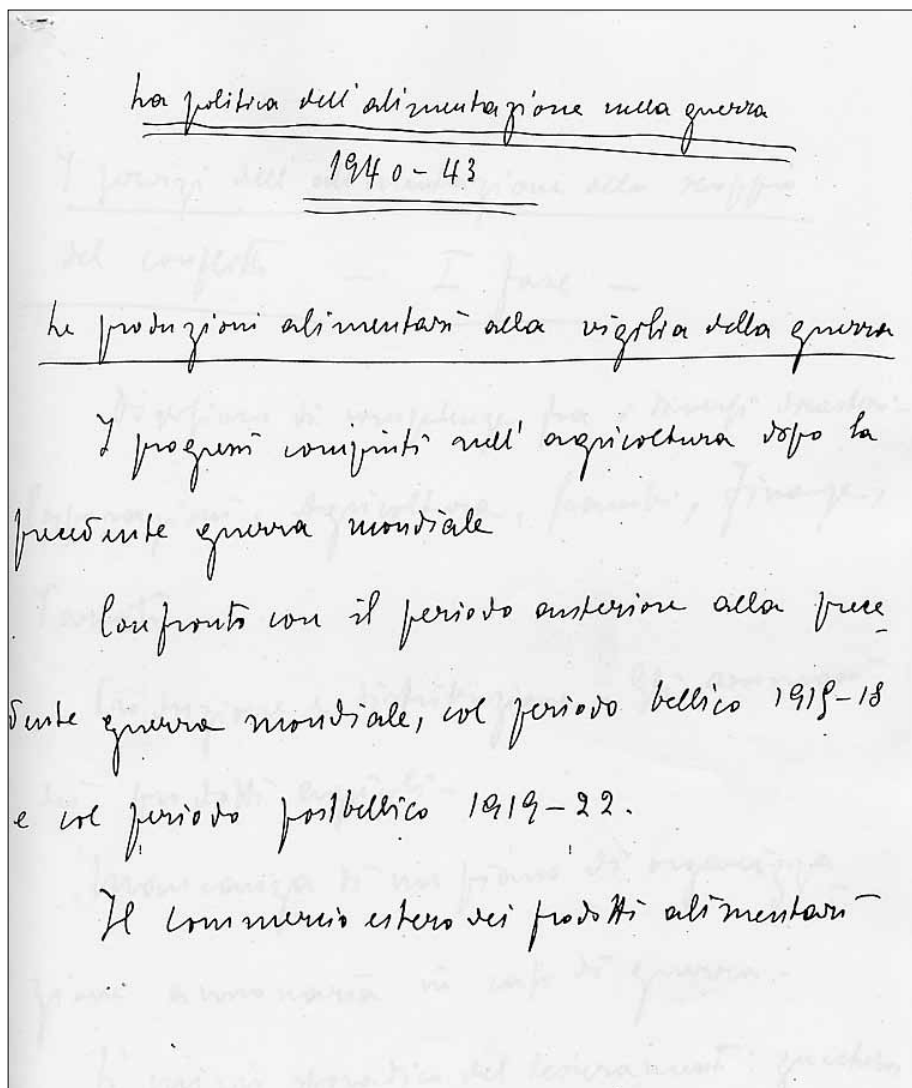 La politica dell'alimentazione nella guerra
1940-43
Le produzioni alimentari alla vigilia della guerra
I progressi compiuti nell'agricoltura dopo la
precedente guerra mondiale
Confronto con il periodo anteriore alla prece
dente guerra mondiale, col periodo bellico 1915-18
e col periodo postbellico 1919-22.
Il commercio estero dei prodotti alimentari